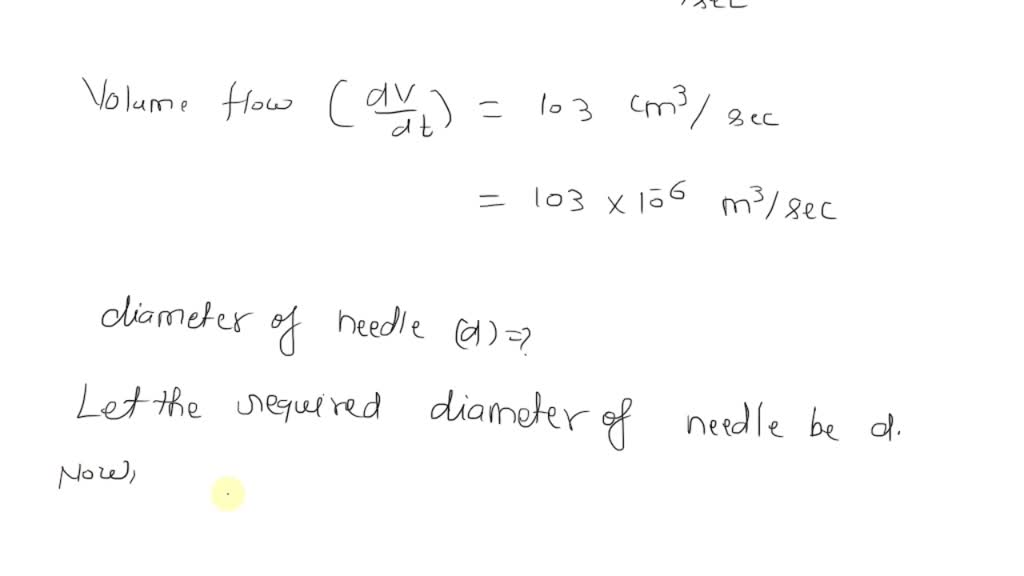 /sec
Volume flow (dV/dt) = 103 cm³/sec
= 103 × 10⁻⁶ m³/sec
diameter of needle (d) = ?
Let the required diameter of needle be d.
Now,